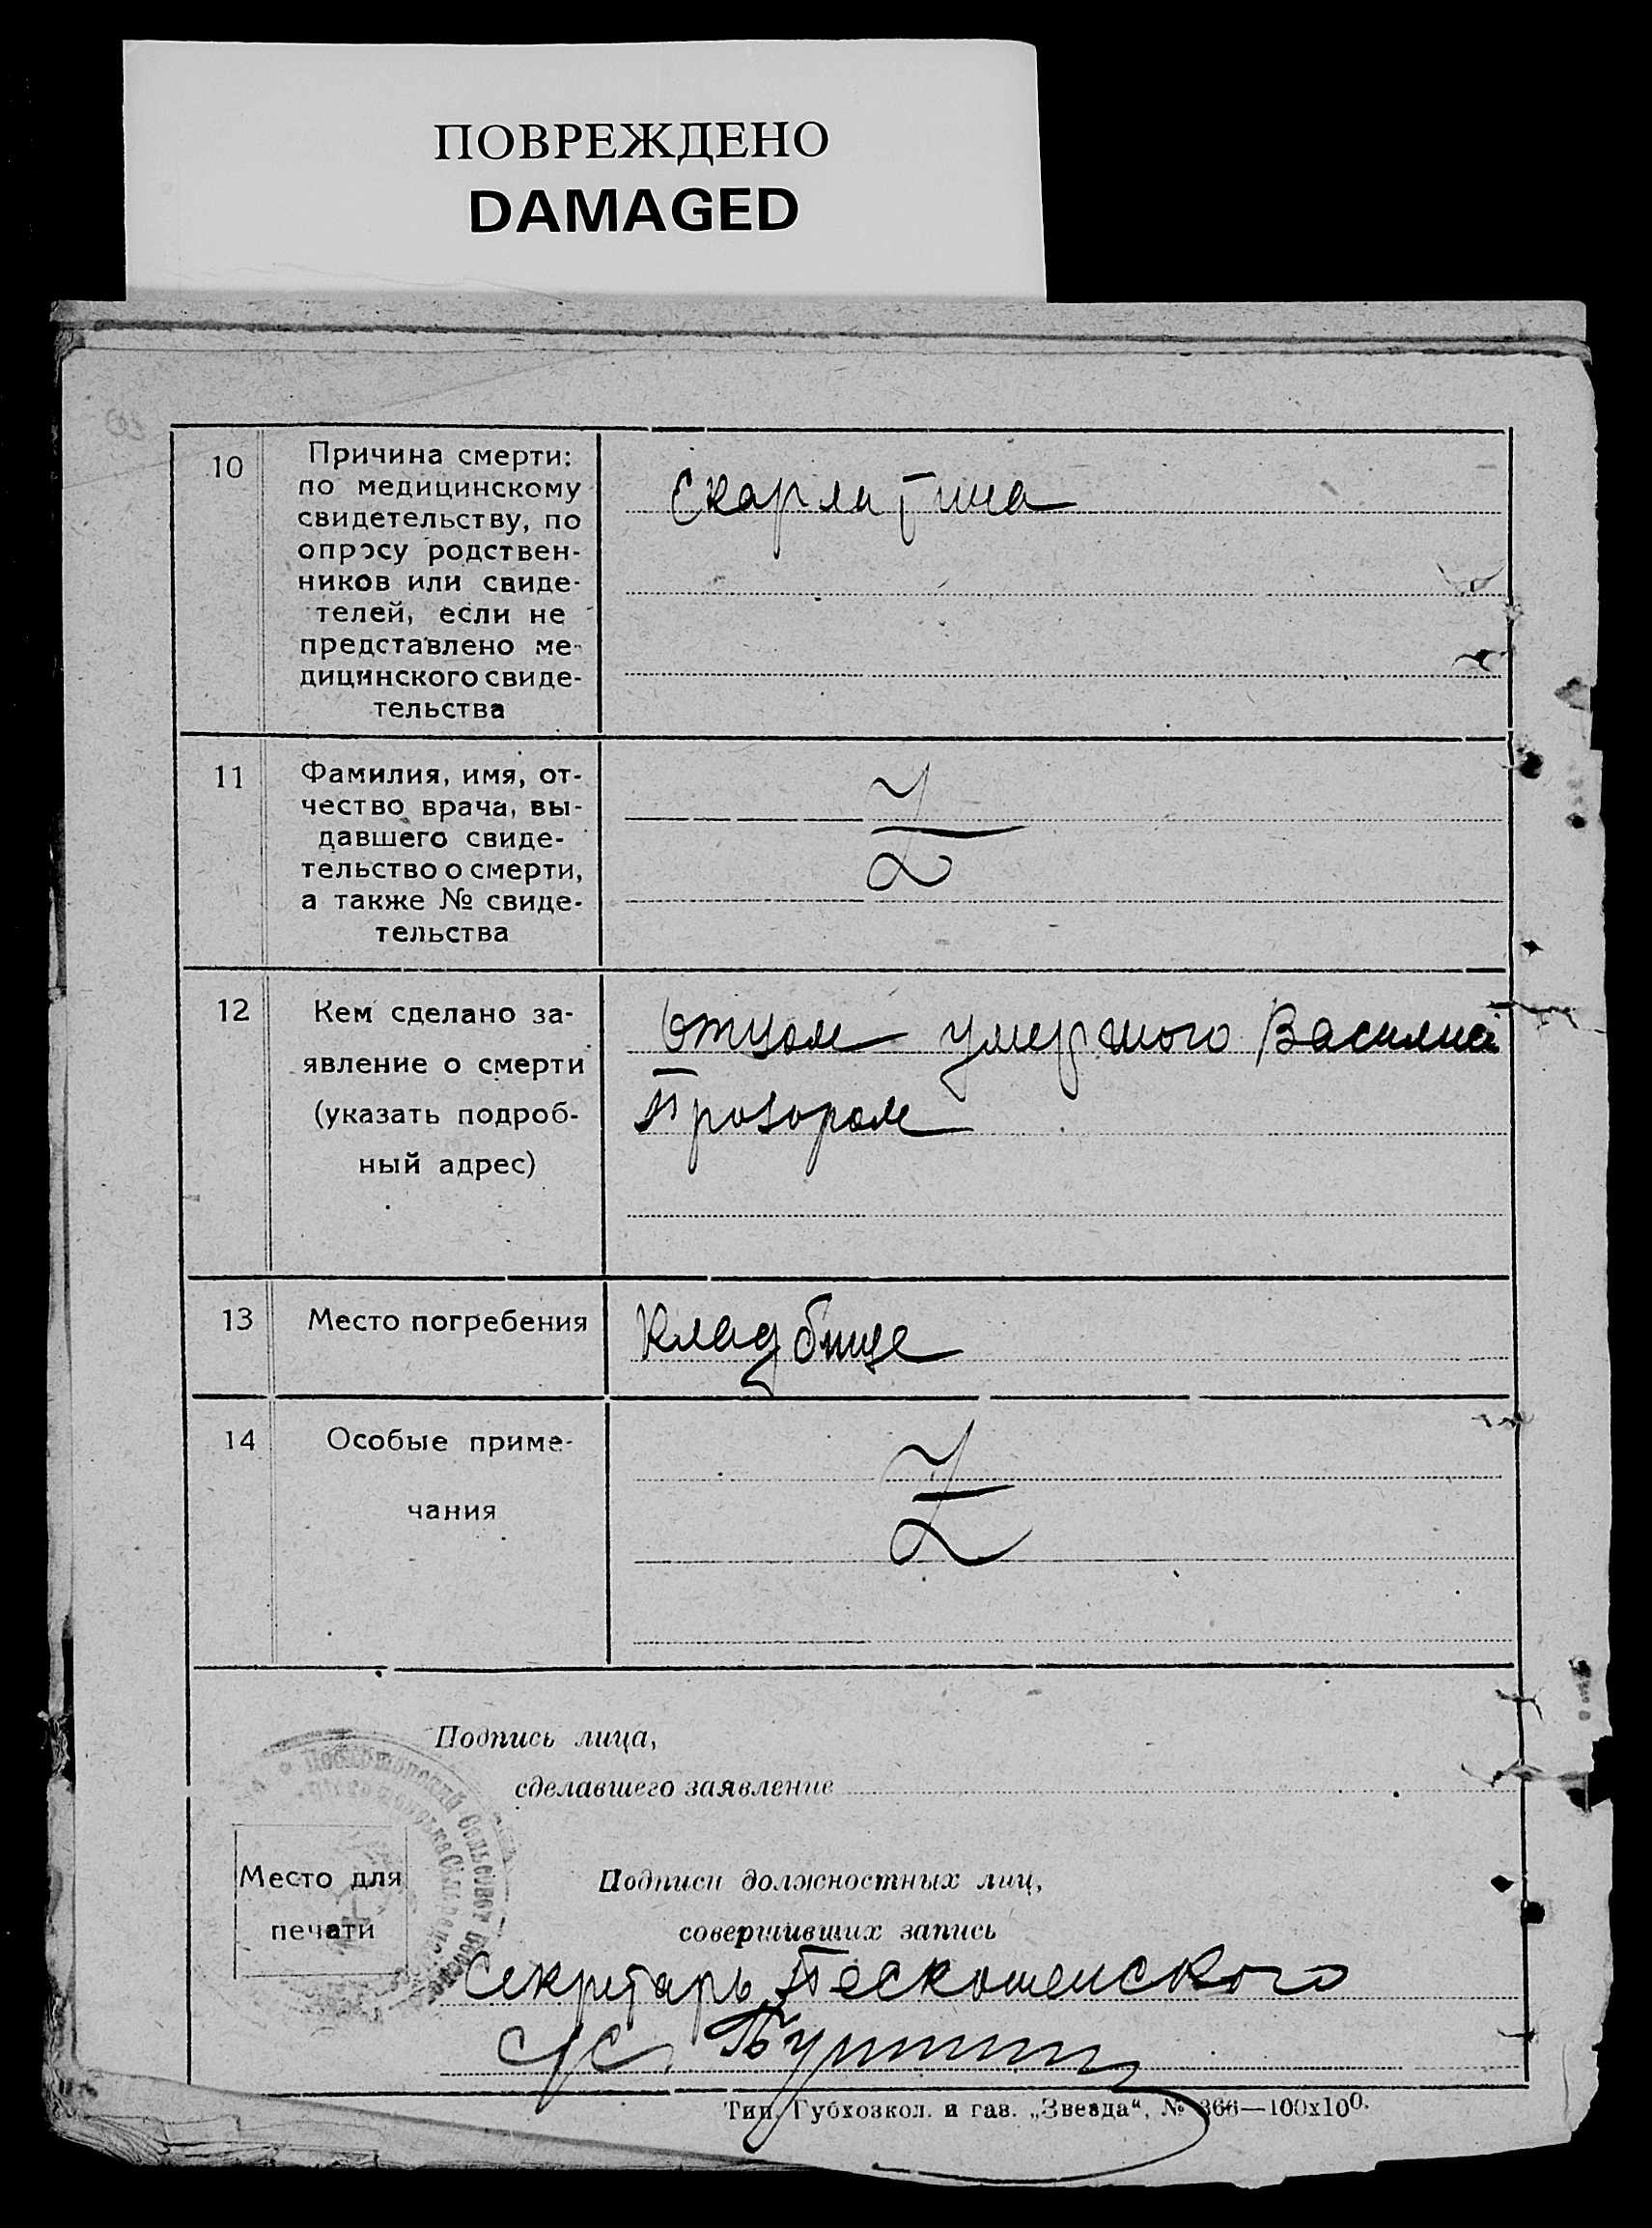 ПОВРЕЖДЕНО
DAMAGED
10
Причина смерти:
по медицинскому
свидетельству, по
опросу родствен-
ников или свиде-
телей, если не
представлено ме-
дицинского свиде-
тельства
Скарлатина
11
Фамилия, имя, от-
чество врача, вы-
давшего свиде-
тельство о смерти,
а также № свиде-
тельства
Z
12
Кем сделано за-
явление о смерти
(указать подроб-
ный адрес)
Отцом умершого Василий
Прозором
13
Место погребения
Кладбище
14
Особые приме-
чания
Z
Подпись лица,
сделавшего заявление
Место для
печати
Подписи должностных лиц,
совершивших запись
Секретарь Пескошенского
с/с.
Тип. Губхозкол. и газ. „Звезда“, № 366—100х100.